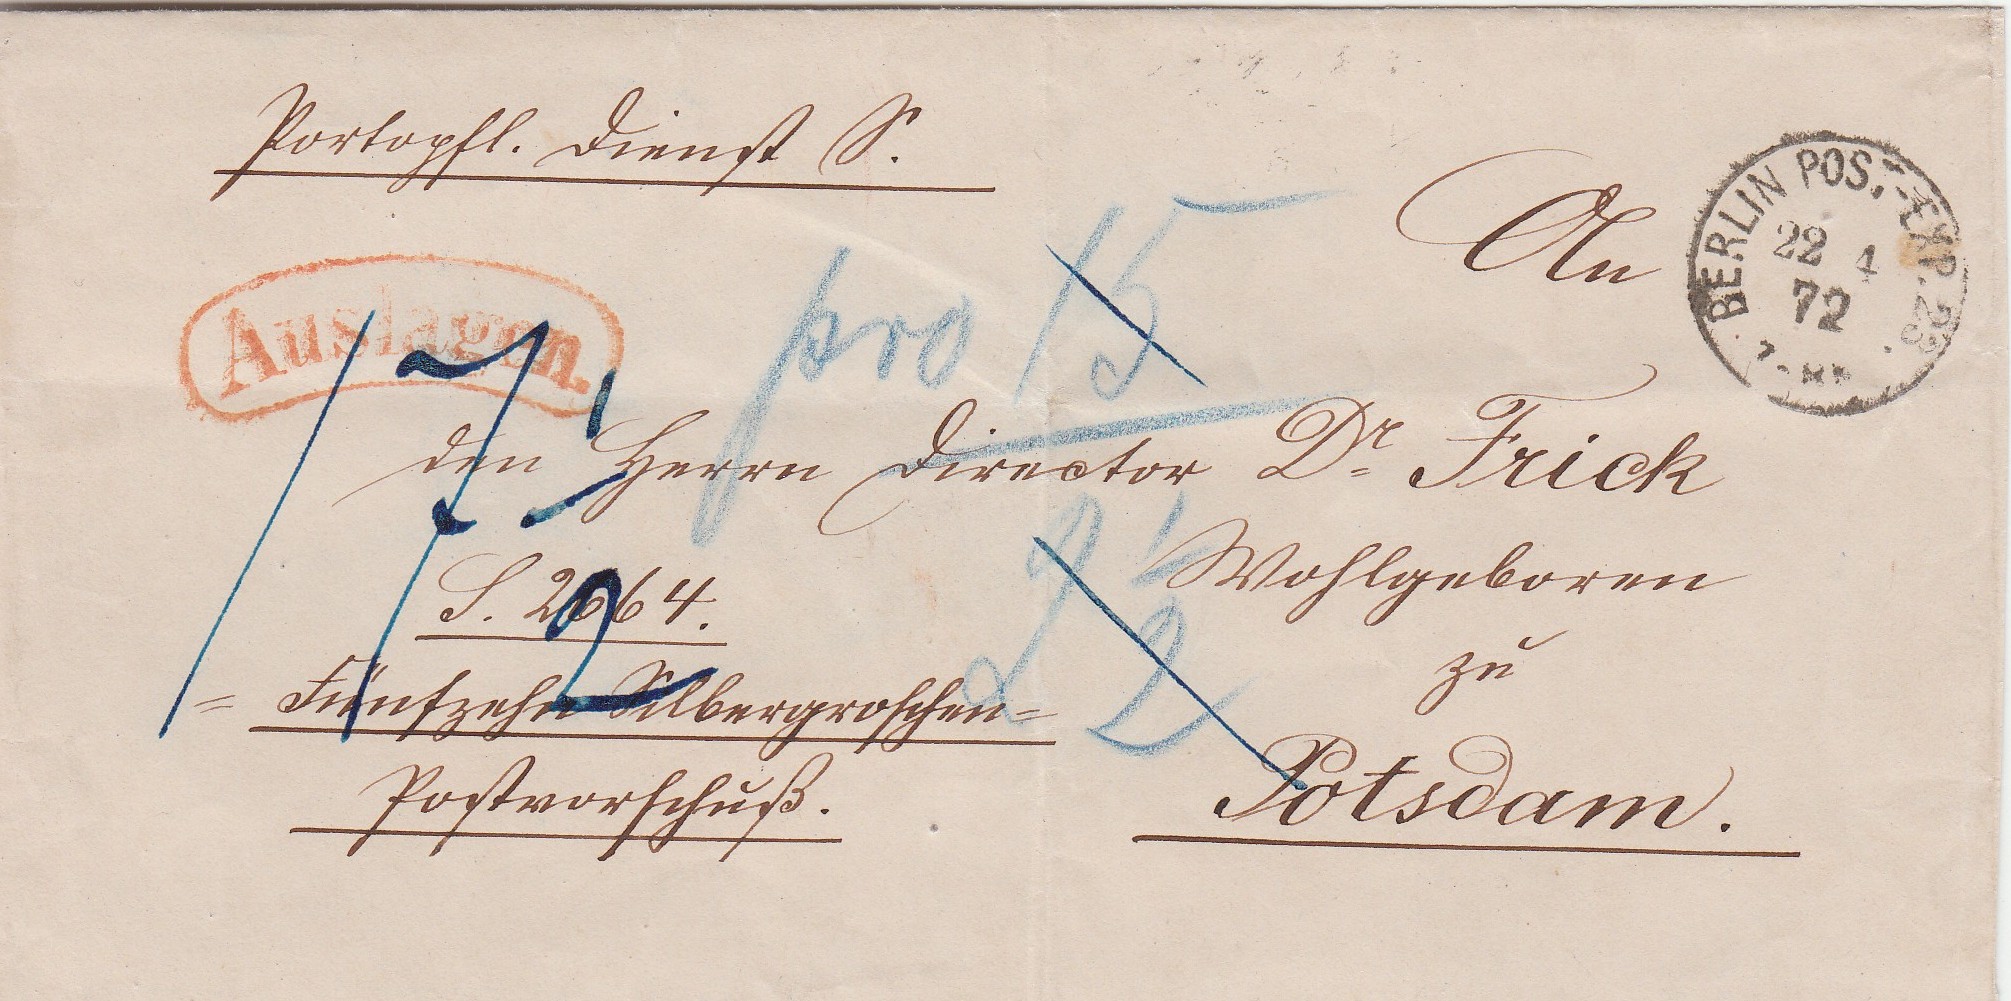 Portopfl. Dienst S.
An
BERLIN POST-EXP. 23
22 4
72
Auslagen.
pro 15
den Herrn Director Dr Frick
S. 2664.
Wohlgeboren
2 1/2
zu
= Fünfzehn Silbergroschen =
Postvorschuß.
Potsdam.